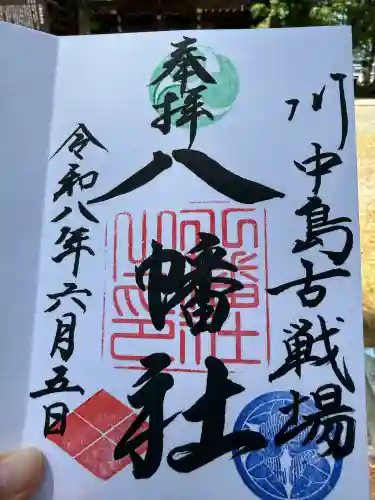 川中島古戦場
奉拝
八幡社
令和八年六月五日